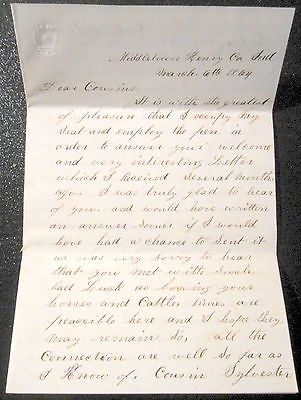 Middletown Henry Co Ind
March 6th 1864
Dear Cousins
It is with the greatest
of pleasure that I occupy my
Seat and employ the pen in
order to answer your welcome
and very interesting Letter
which I Received several months
ago. I was truly glad to hear
of you. and would have written
an answer soner if I would
have had a chance to Sent it
us was very Sorry to hear
that you met with Sutch
bad Luck as loosing your
horses and Cattle, times are
peaceible here and I hope they
may remain So, all the
Connection are well So far as
I Know of. Cousin Sylvester